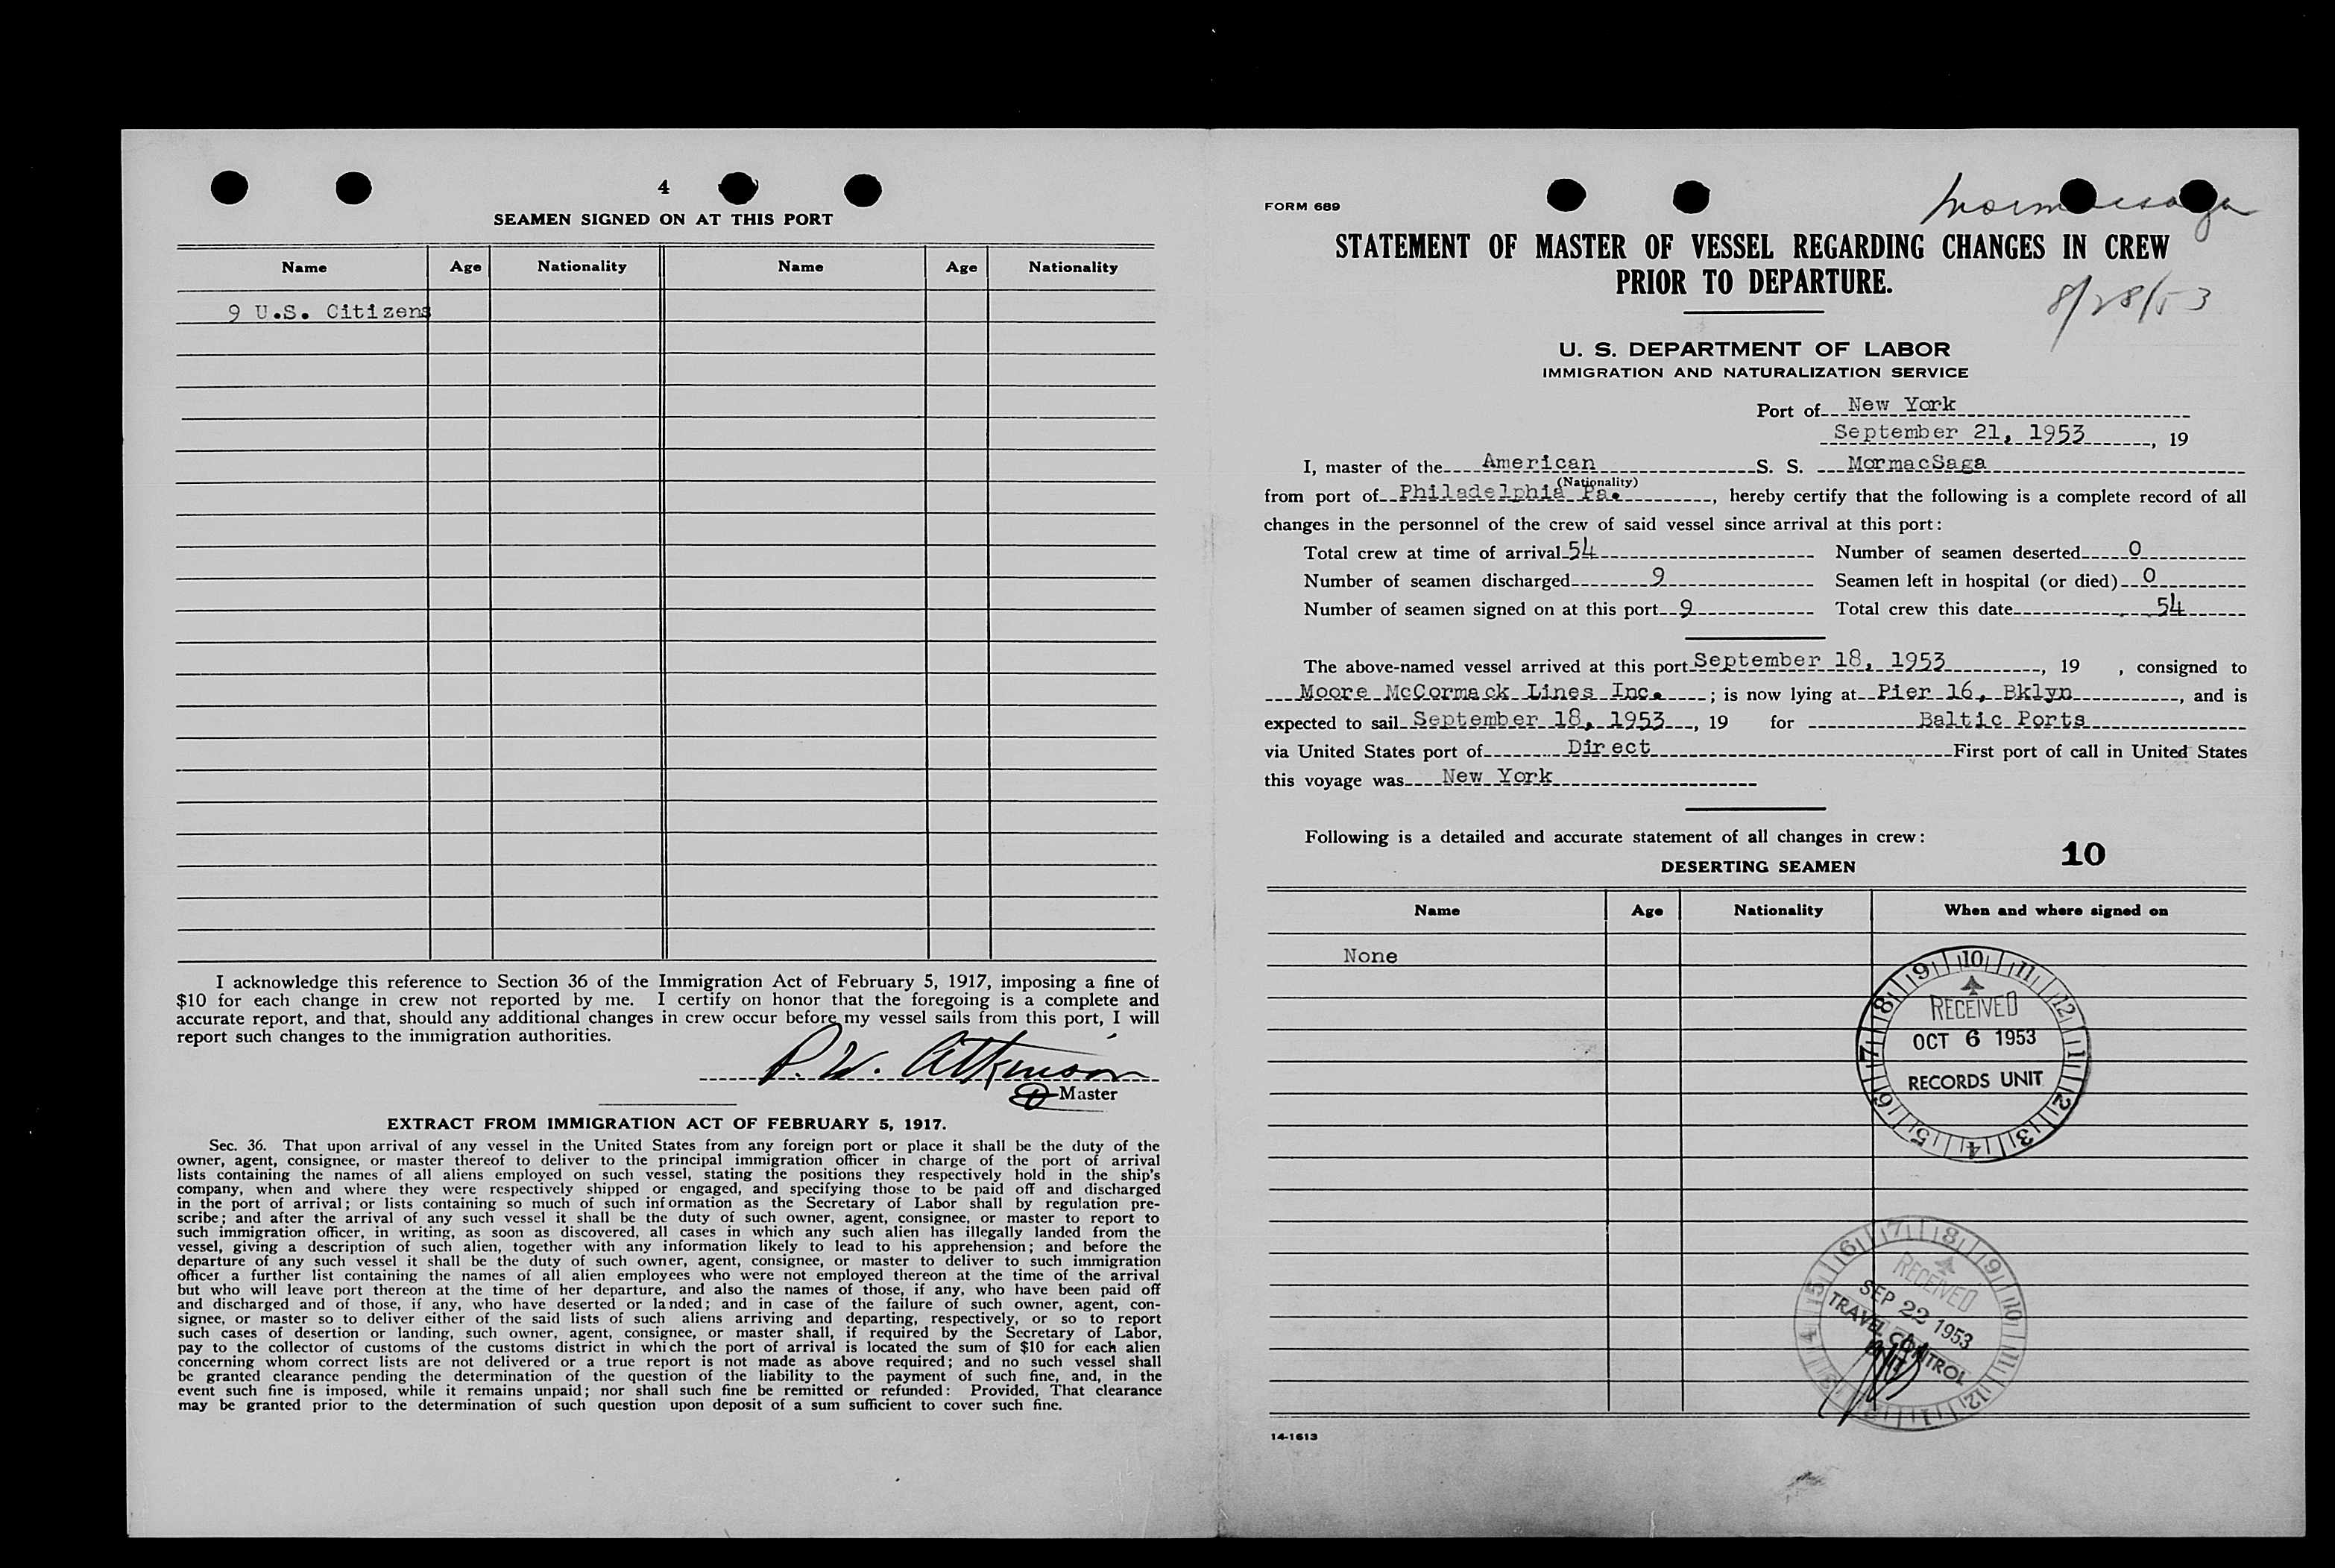 4
SEAMEN SIGNED ON AT THIS PORT
Name Age Nationality Name Age Nationality
9 U.S. Citizens
I acknowledge this reference to Section 36 of the Immigration Act of February 5, 1917, imposing a fine of
$10 for each change in crew not reported by me. I certify on honor that the foregoing is a complete and
accurate report, and that, should any additional changes in crew occur before my vessel sails from this port, I will
report such changes to the immigration authorities.
P. W. Atkinson
Master
EXTRACT FROM IMMIGRATION ACT OF FEBRUARY 5, 1917.
Sec. 36. That upon arrival of any vessel in the United States from any foreign port or place it shall be the duty of the
owner, agent, consignee, or master thereof to deliver to the principal immigration officer in charge of the port of arrival
lists containing the names of all aliens employed on such vessel, stating the positions they respectively hold in the ship's
company, when and where they were respectively shipped or engaged, and specifying those to be paid off and discharged
in the port of arrival; or lists containing so much of such information as the Secretary of Labor shall by regulation pre-
scribe; and after the arrival of any such vessel it shall be the duty of such owner, agent, consignee, or master to report to
such immigration officer, in writing, as soon as discovered, all cases in which any such alien has illegally landed from the
vessel, giving a description of such alien, together with any information likely to lead to his apprehension; and before the
departure of any such vessel it shall be the duty of such owner, agent, consignee, or master to deliver to such immigration
officer a further list containing the names of all alien employees who were not employed thereon at the time of the arrival
but who will leave port thereon at the time of her departure, and also the names of those, if any, who have been paid off
and discharged and of those, if any, who have deserted or landed; and in case of the failure of such owner, agent, con-
signee, or master so to deliver either of the said lists of such aliens arriving and departing, respectively, or so to report
such cases of desertion or landing, such owner, agent, consignee, or master shall, if required by the Secretary of Labor,
pay to the collector of customs of the customs district in which the port of arrival is located the sum of $10 for each alien
concerning whom correct lists are not delivered or a true report is not made as above required; and no such vessel shall
be granted clearance pending the determination of the question of the liability to the payment of such fine, and, in the
event such fine is imposed, while it remains unpaid; nor shall such fine be remitted or refunded: Provided, That clearance
may be granted prior to the determination of such question upon deposit of a sum sufficient to cover such fine.
FORM 689
Mormacsaga
STATEMENT OF MASTER OF VESSEL REGARDING CHANGES IN CREW
PRIOR TO DEPARTURE.
8/28/53
U. S. DEPARTMENT OF LABOR
IMMIGRATION AND NATURALIZATION SERVICE
Port of New York
September 21, 1953, 19
I, master of the American S. S. MormacSaga
(Nationality)
from port of Philadelphia Pa., hereby certify that the following is a complete record of all
changes in the personnel of the crew of said vessel since arrival at this port:
Total crew at time of arrival 54 Number of seamen deserted 0
Number of seamen discharged 9 Seamen left in hospital (or died) 0
Number of seamen signed on at this port 9 Total crew this date 54
The above-named vessel arrived at this port September 18, 1953, 19 , consigned to
Moore McCormack Lines Inc.; is now lying at Pier 16, Bklyn, and is
expected to sail September 18, 1953, 19 for Baltic Ports
via United States port of Direct First port of call in United States
this voyage was New York
Following is a detailed and accurate statement of all changes in crew:
10
DESERTING SEAMEN
Name Age Nationality When and where signed on
None
RECEIVED
OCT 6 1953
RECORDS UNIT
RECEIVED
SEP 22 1953
TRAVEL CONTROL
UNIT
14-1613